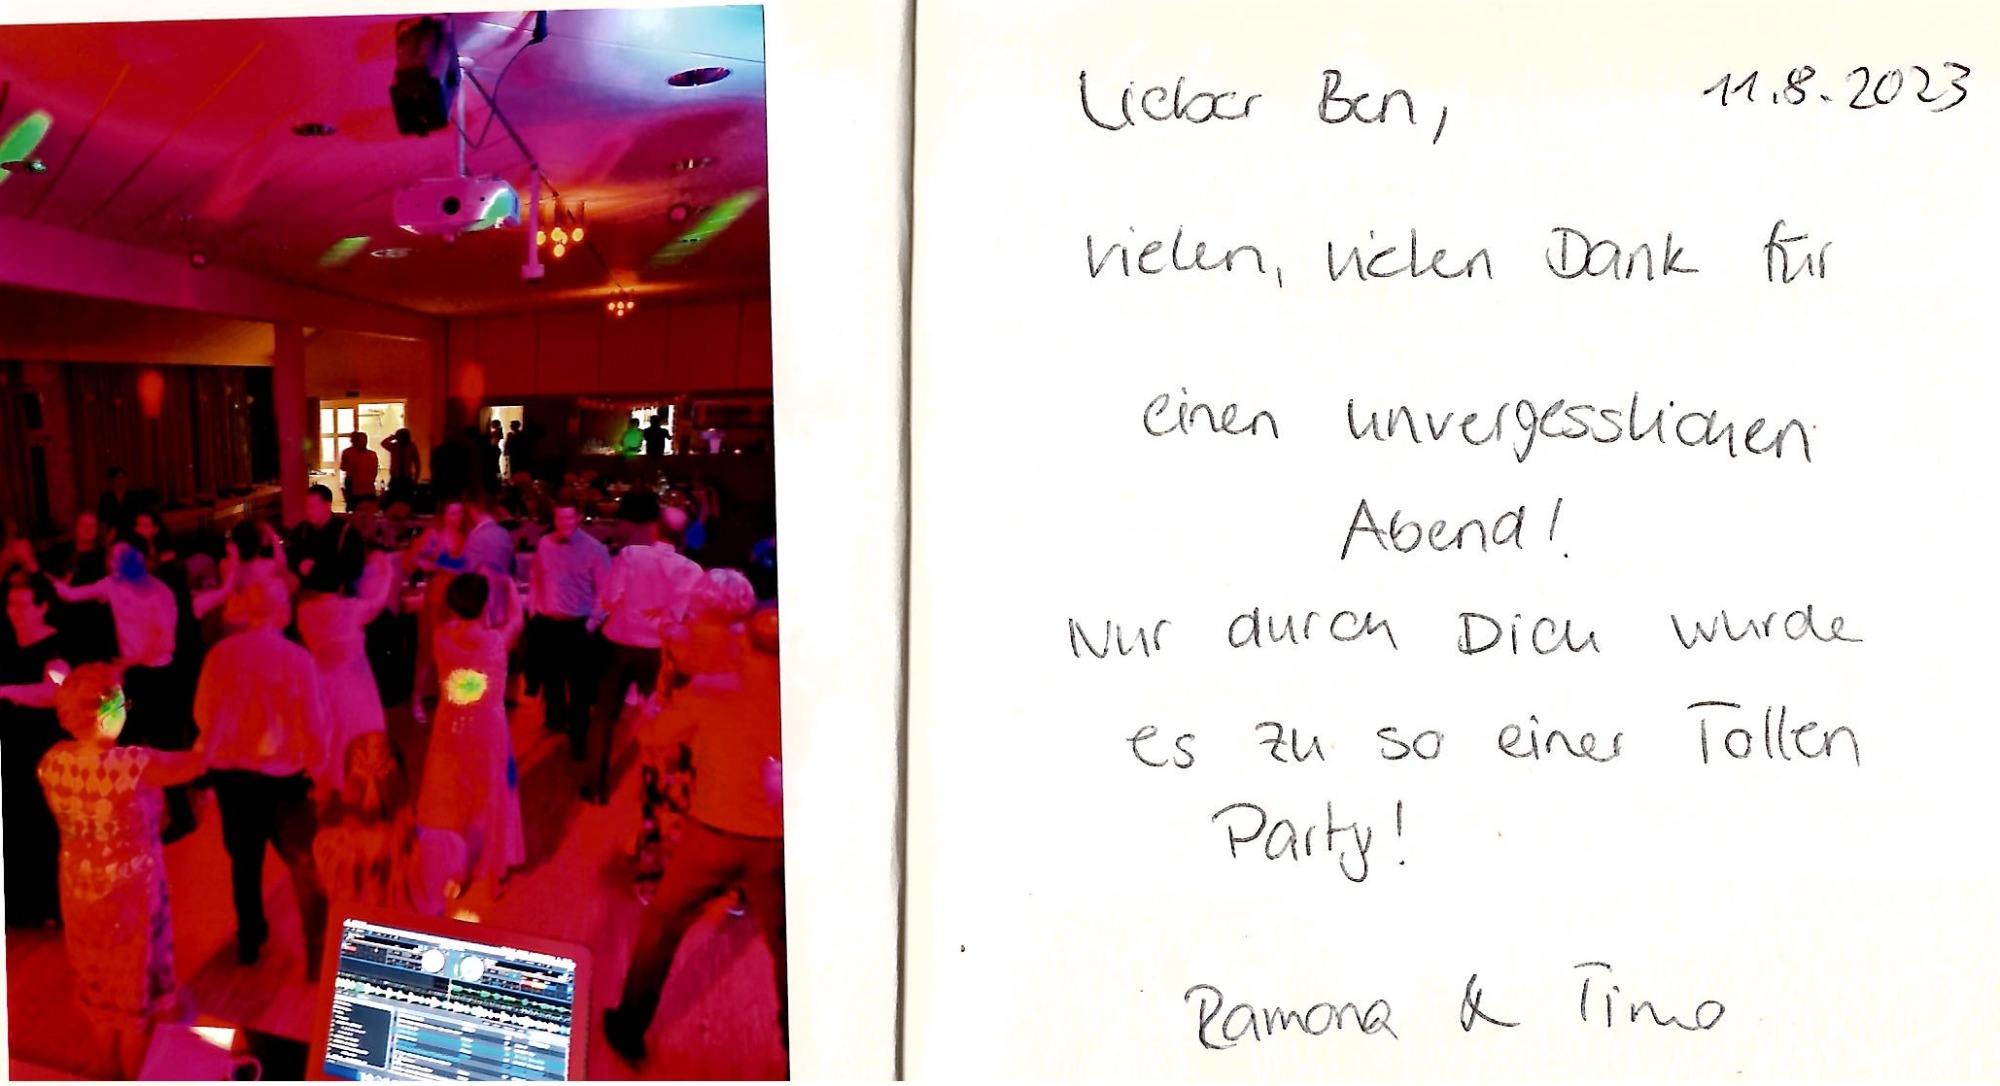 Lieber Ben, 11.8.2023
vielen, vielen Dank für
einen unvergesslichen
Abend!
Nur durch Dich wurde
es zu so einer Tollen
Party!
Ramona & Timo